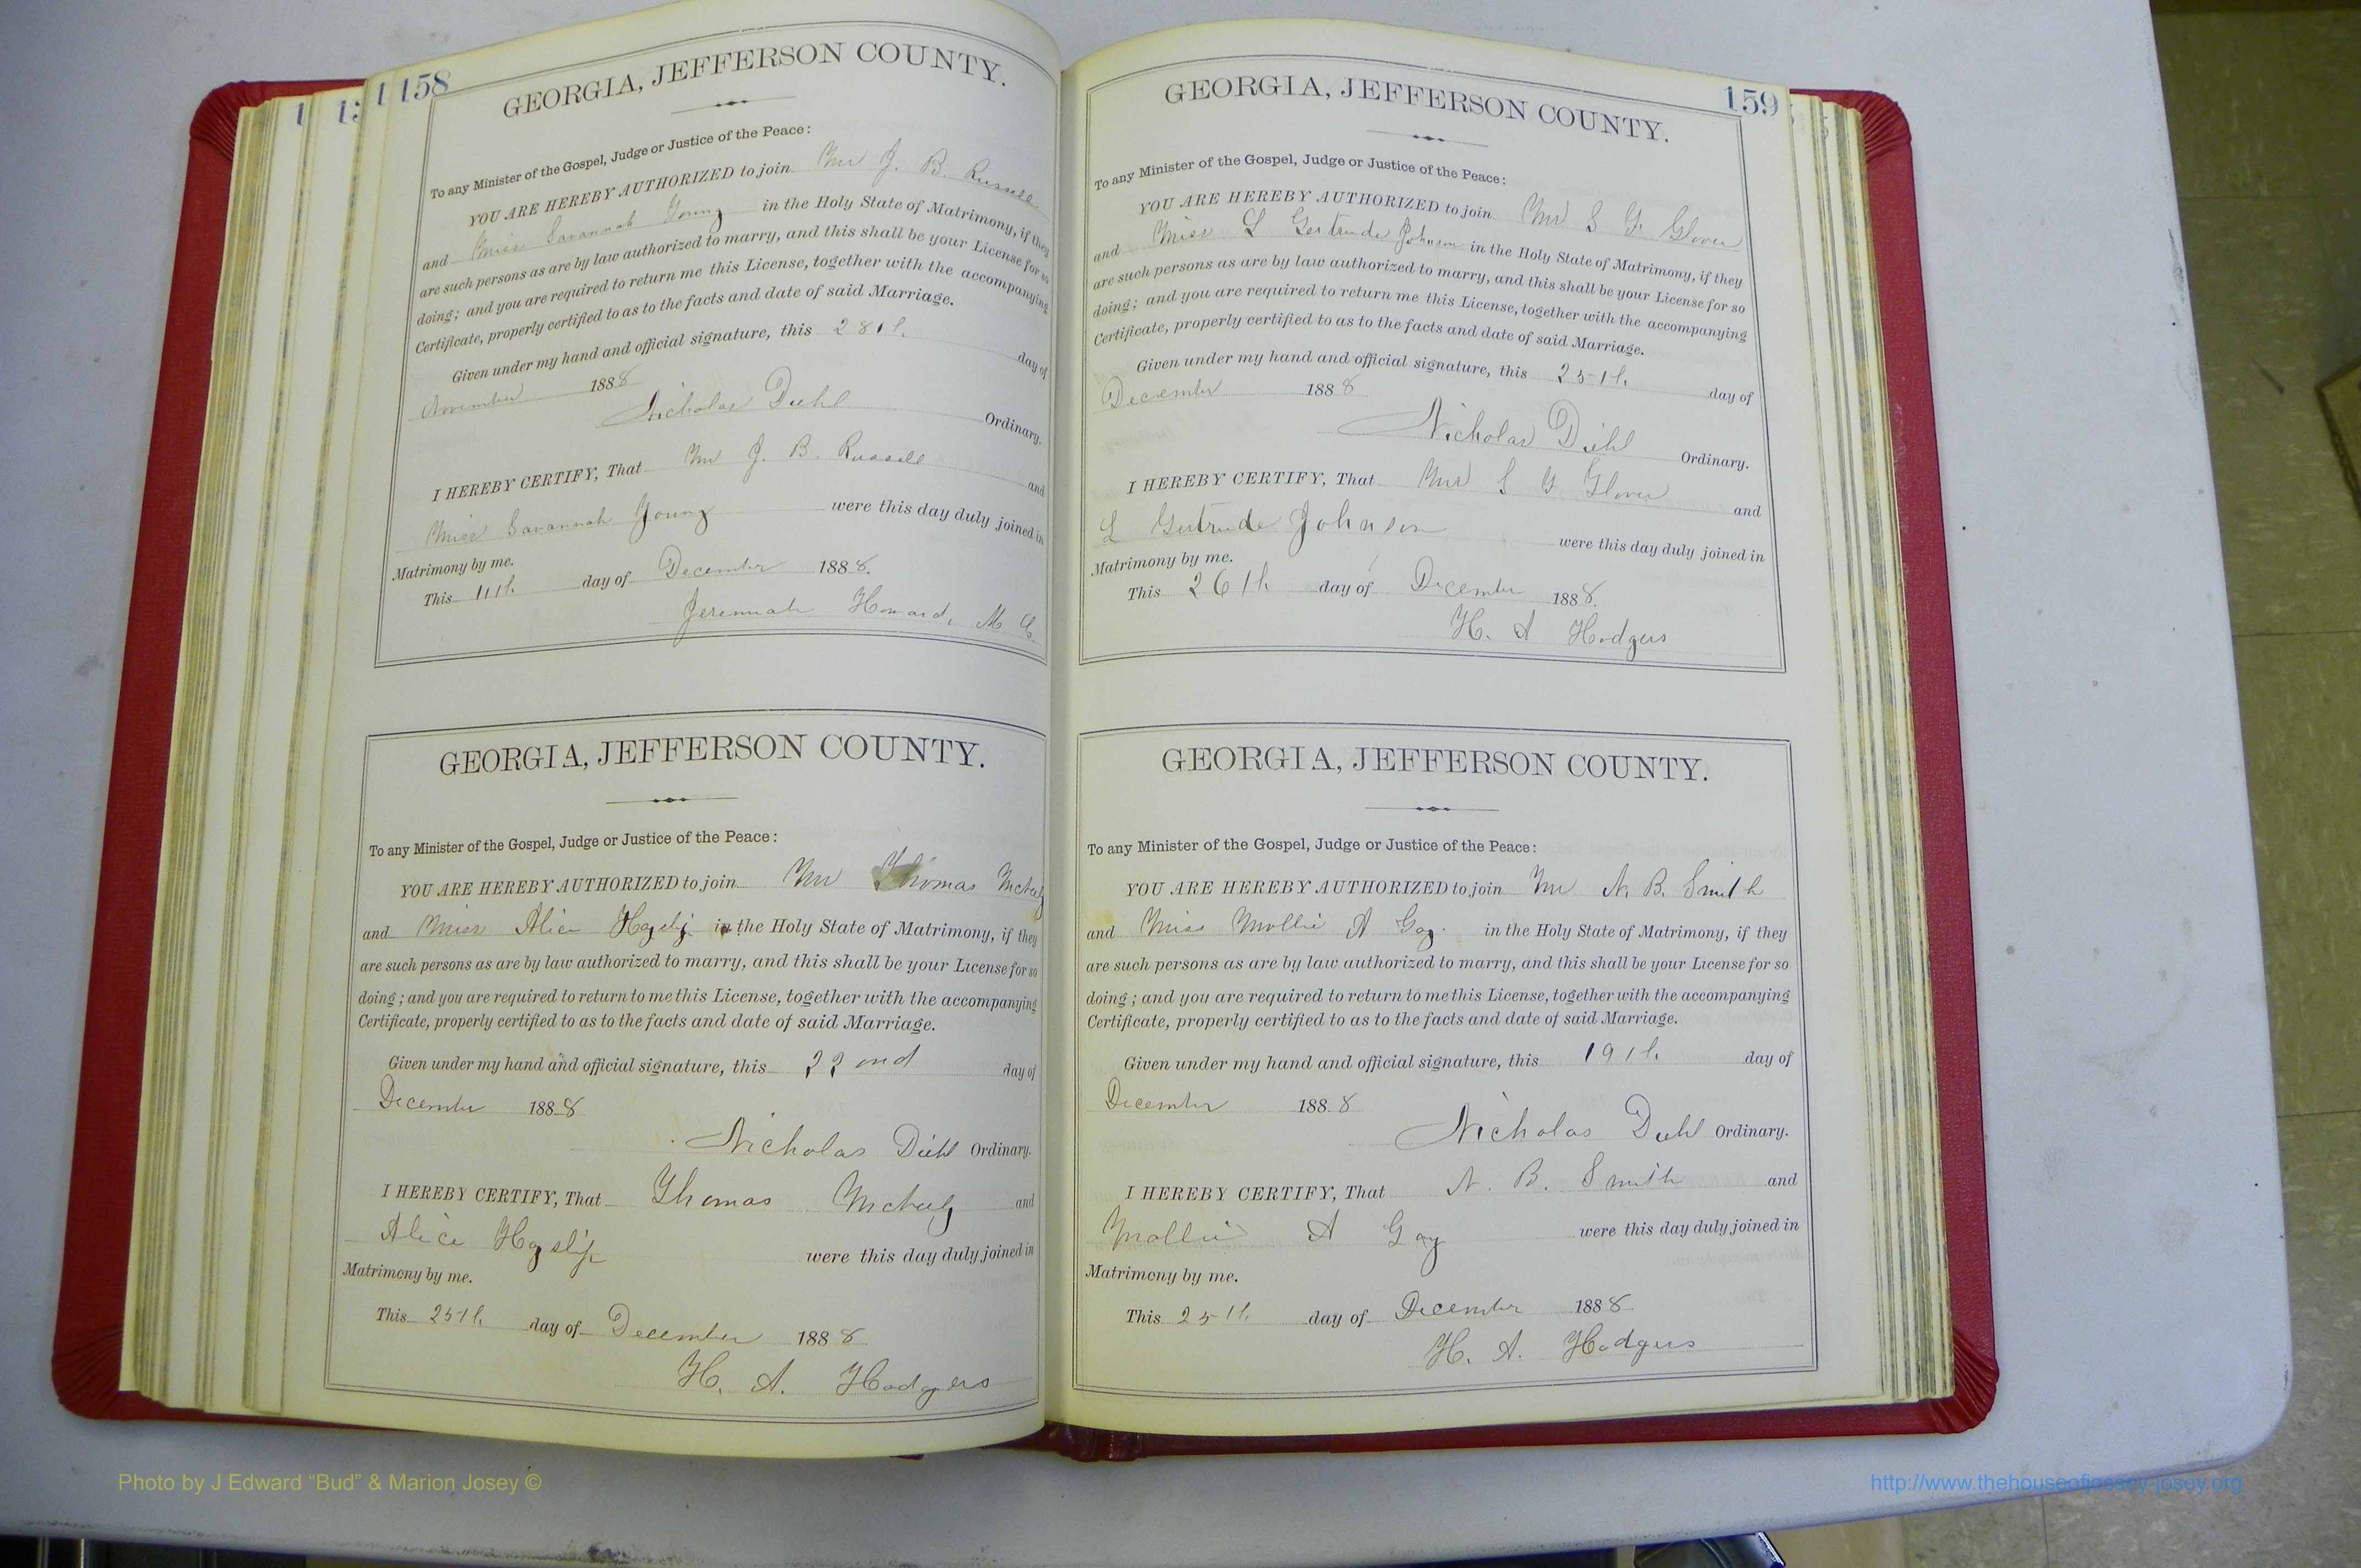 158
GEORGIA, JEFFERSON COUNTY.
To any Minister of the Gospel, Judge or Justice of the Peace:
YOU ARE HEREBY AUTHORIZED to join Mr J. B. Russell
and Miss Savannah Young in the Holy State of Matrimony, if they
are such persons as are by law authorized to marry, and this shall be your License for so
doing; and you are required to return me this License, together with the accompanying
Certificate, properly certified to as to the facts and date of said Marriage.
Given under my hand and official signature, this 28th day of
November 1888
Nicholas Diehl Ordinary.
I HEREBY CERTIFY, That Mr J. B. Russell and
Miss Savannah Young were this day duly joined in
Matrimony by me.
This 11th day of December 1888.
Jeremiah Howard, M. G.
GEORGIA, JEFFERSON COUNTY.
To any Minister of the Gospel, Judge or Justice of the Peace:
YOU ARE HEREBY AUTHORIZED to join Mr Thomas
and Miss Alice in the Holy State of Matrimony, if they
are such persons as are by law authorized to marry, and this shall be your License for so
doing; and you are required to return to me this License, together with the accompanying
Certificate, properly certified to as to the facts and date of said Marriage.
Given under my hand and official signature, this 22nd day of
December 1888
Nicholas Diehl Ordinary.
I HEREBY CERTIFY, That Thomas and
Alice Hayslip were this day duly joined in
Matrimony by me.
This 25th day of December 1888
H. A. Hodgers
159
GEORGIA, JEFFERSON COUNTY.
To any Minister of the Gospel, Judge or Justice of the Peace:
YOU ARE HEREBY AUTHORIZED to join Mr S Y. Glover
and Miss L Gertrude Johnson in the Holy State of Matrimony, if they
are such persons as are by law authorized to marry, and this shall be your License for so
doing; and you are required to return me this License, together with the accompanying
Certificate, properly certified to as to the facts and date of said Marriage.
Given under my hand and official signature, this 25th day of
December 1888
Nicholas Diehl Ordinary.
I HEREBY CERTIFY, That Mr S Y Glover and
L Gertrude Johnson were this day duly joined in
Matrimony by me.
This 26th day of December 1888.
H. A Hodgers
GEORGIA, JEFFERSON COUNTY.
To any Minister of the Gospel, Judge or Justice of the Peace:
YOU ARE HEREBY AUTHORIZED to join Mr N. B. Smith
and Miss Mollie A Gay. in the Holy State of Matrimony, if they
are such persons as are by law authorized to marry, and this shall be your License for so
doing; and you are required to return to me this License, together with the accompanying
Certificate, properly certified to as to the facts and date of said Marriage.
Given under my hand and official signature, this 19th day of
December 1888
Nicholas Diehl Ordinary.
I HEREBY CERTIFY, That N. B. Smith and
Mollie A Gay were this day duly joined in
Matrimony by me.
This 25th day of December 1888
H. A. Hodgers
Photo by J Edward “Bud” & Marion Josey ©
http://www.thehouseofjossey-josey.org